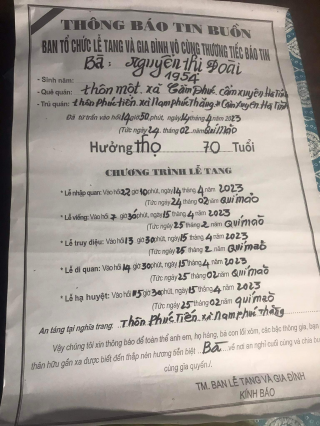 THÔNG BÁO TIN BUỒN
BAN TỔ CHỨC LỄ TANG VÀ GIA ĐÌNH VÔ CÙNG THƯƠNG TIẾC BÁO TIN
Bà: Nguyễn Thị Đoài
- Sinh năm: 1954
- Quê quán: thôn một. xã Cẩm Phúc. Cẩm Xuyên Hà Tĩnh
- Trú quán: thôn Phúc Tiến. xã Nam Phúc Thăng. Cẩm Xuyên Hà Tĩnh
Đã từ trần vào hồi 14 giờ 50 phút, ngày 14 tháng 4 năm 2023
(Tức ngày 24 tháng 02 năm Quí mão
Hưởng thọ 70 Tuổi
CHƯƠNG TRÌNH LỄ TANG
* Lễ nhập quan: Vào hồi 22 giờ 10 phút, ngày 14 tháng 4 năm 2023
(Tức ngày 24 tháng 02 năm Quí mão
* Lễ viếng: Vào hồi 7 giờ 30 phút, ngày 15 tháng 4 năm 2023
(Tức ngày 25 tháng 2 năm Quí mão
* Lễ truy điệu: Vào hồi 13 giờ 30 phút, ngày 15 tháng 4 năm 2023
(Tức ngày 25 tháng 2 năm Quí mão
* Lễ di quan: Vào hồi 14 giờ 30 phút, ngày 15 tháng 4 năm 2023
(Tức ngày 25 tháng 02 năm Quí mão
* Lễ hạ huyệt: Vào hồi 15 giờ 30 phút, ngày 15 tháng 4 năm 2023
(Tức ngày 25 tháng 02 năm quí mão
An táng tại nghĩa trang: Thôn Phúc Tiến xã Nam Phúc Thăng
Vậy chúng tôi xin thông báo để toàn thể anh em, họ hàng, bà con lối xóm, các bậc thông gia, bạn
thân hữu gần xa được biết đến thắp nén hương tiễn biệt Bà về nơi an nghỉ cuối cùng và chia bu
cùng gia quyến./.
TM. BAN LỄ TANG VÀ GIA ĐÌNH
KÍNH BÁO